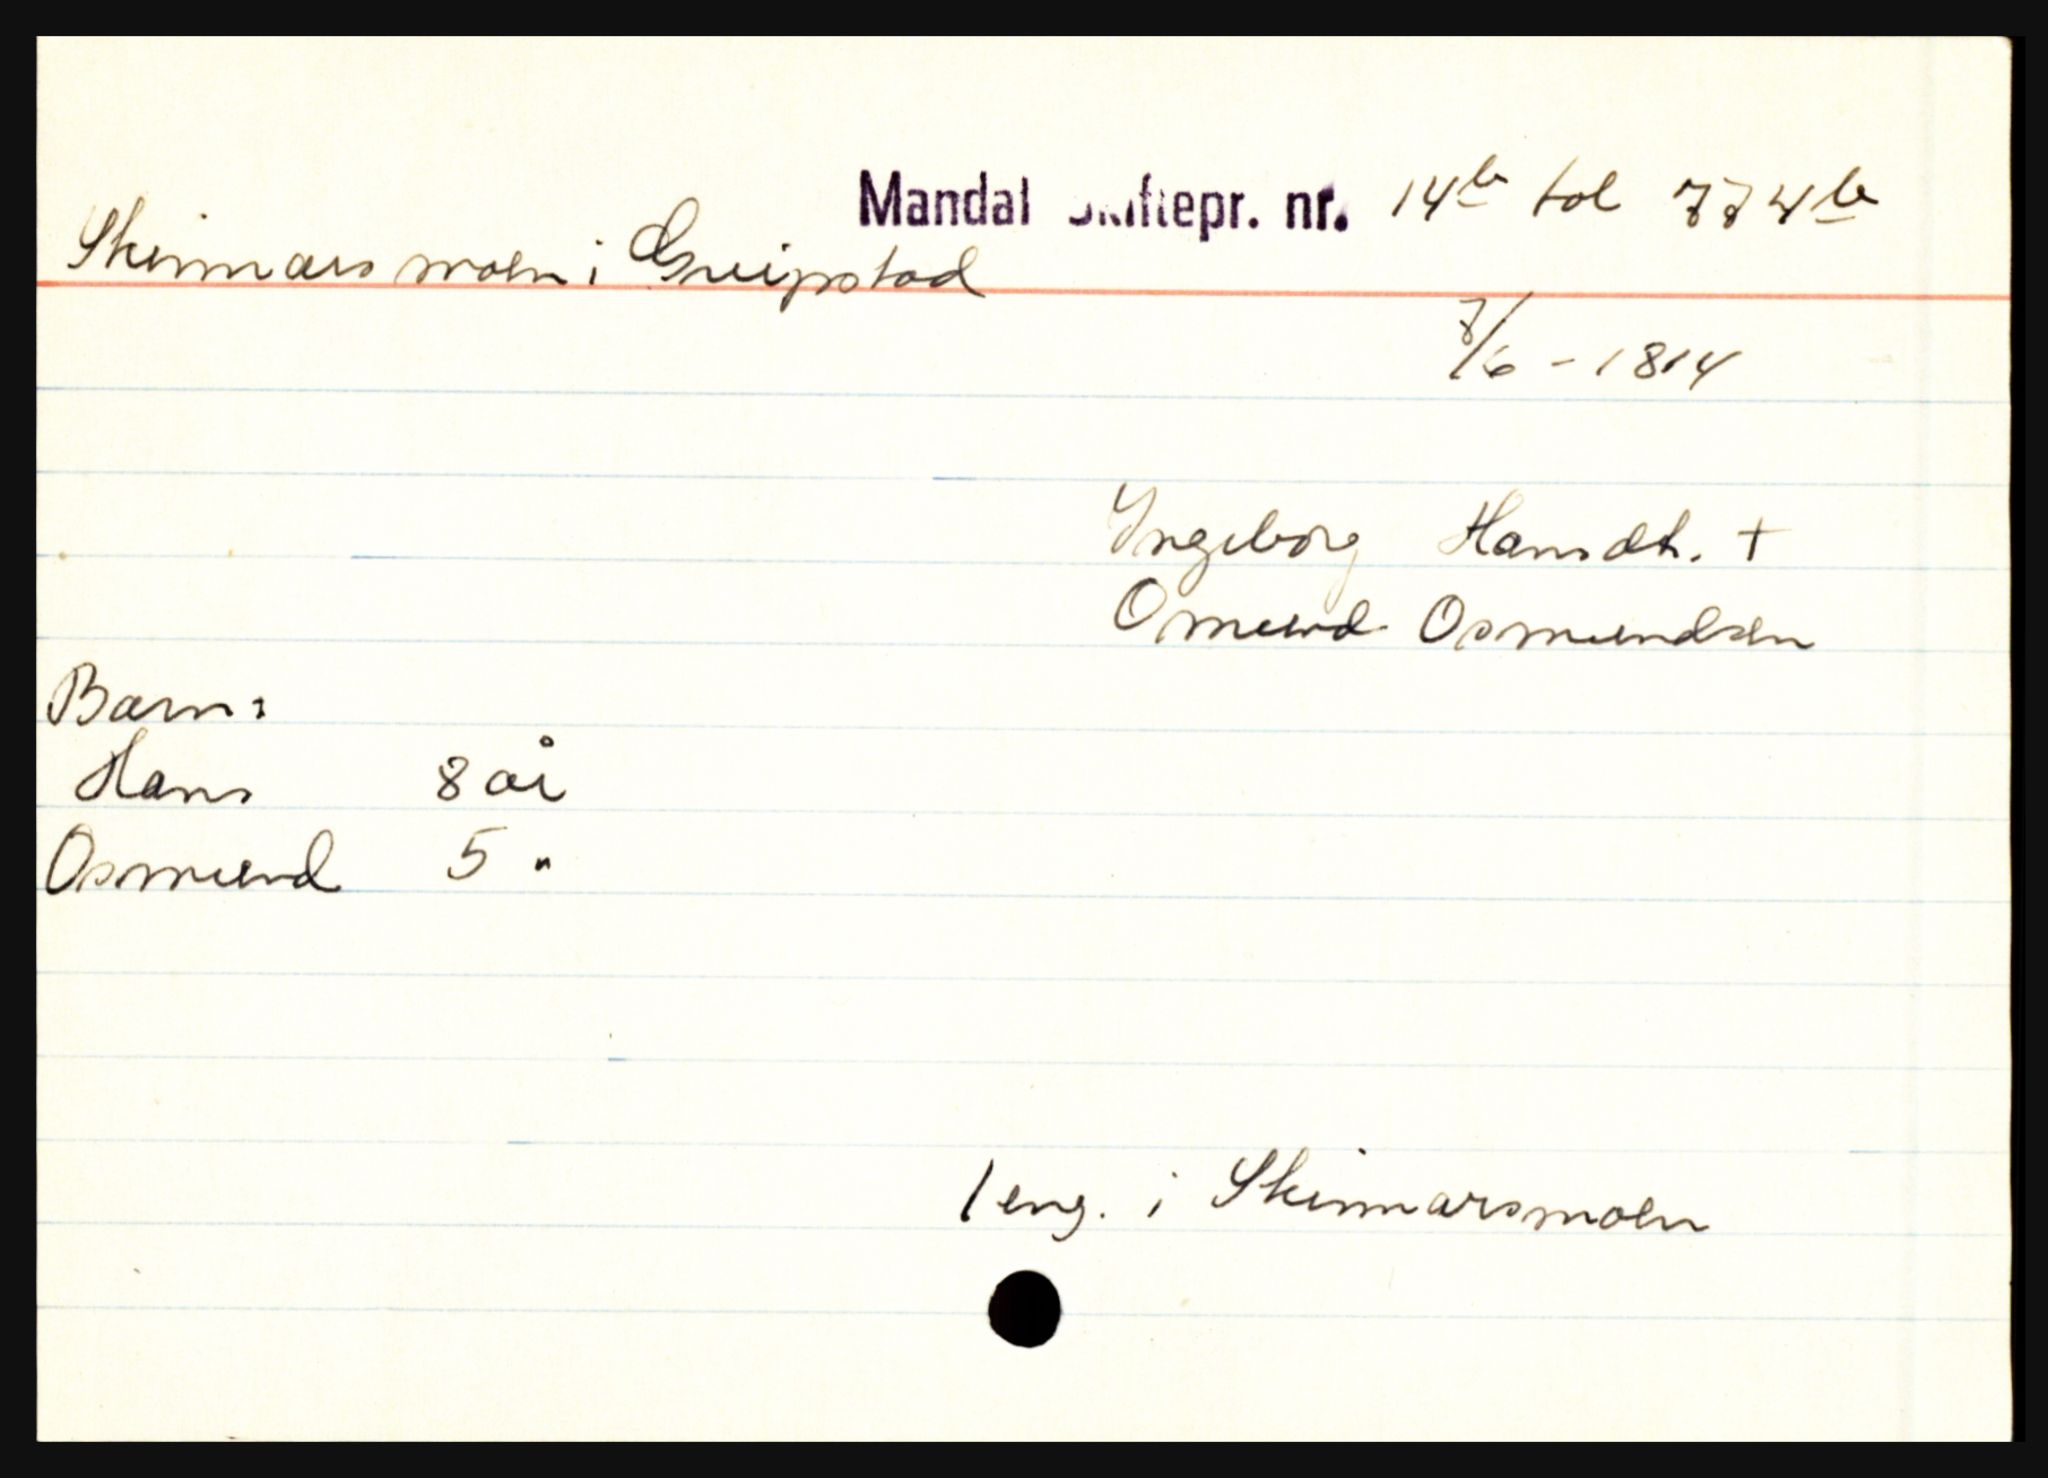 Mandal Skiftepr. nr. 14b fol 774b
Skinnarsmoen i Greipstad
7/6 - 1814
Ingeborg Hansdt. +
Omund Osmundsen
Barn:
Hans 8 år
Osmund 5 "
1 eng. i Skinnarsmoen